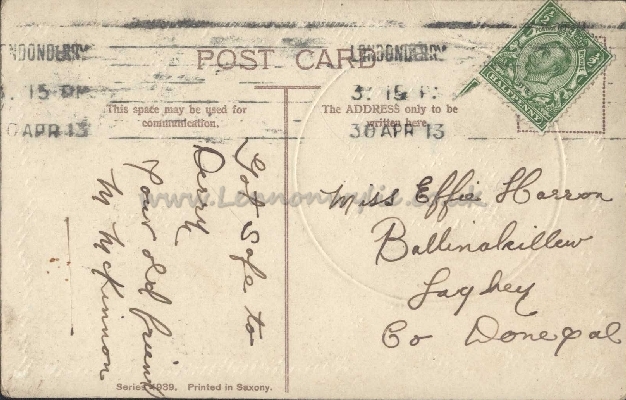 LONDONDERRY
3. 15 PM
30 APR 13
POST CARD
LONDONDERRY
3. 15 P
30 APR 13
HALFPENNY
This space may be used for
communication.
The ADDRESS only to be
written here.
Got safe to
Derry
Your old friend
M McKinnon
Miss Effie Harron
Ballinakillew
Laghey
Co Donegal
Series 1939. Printed in Saxony.